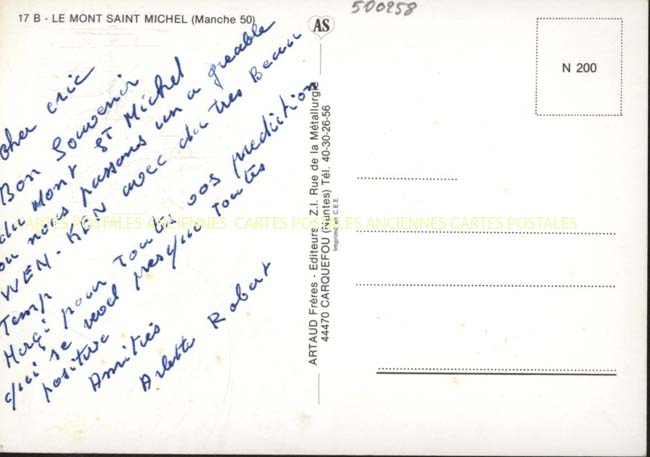 17 B - LE MONT SAINT MICHEL (Manche 50)
500258
AS
N 200
cher eric
Bon Souvenir
du MONT ST Michel
ou nous passons un agreable
WEN-KEN avec du tres Beau
Temp
Merçi pour toute vos prediction
qui se vool presque toutes
positive
Amitiés
Arlette Robert
ARTAUD Frères - Editeurs - Z.I. Rue de la Métallurgie
44470 CARQUEFOU (Nantes) Tél. 40-30-26-56
Imprimé en C.E.E.
CARTES POSTALES ANCIENNES CARTES POSTALES ANCIENNES CARTES POSTALES